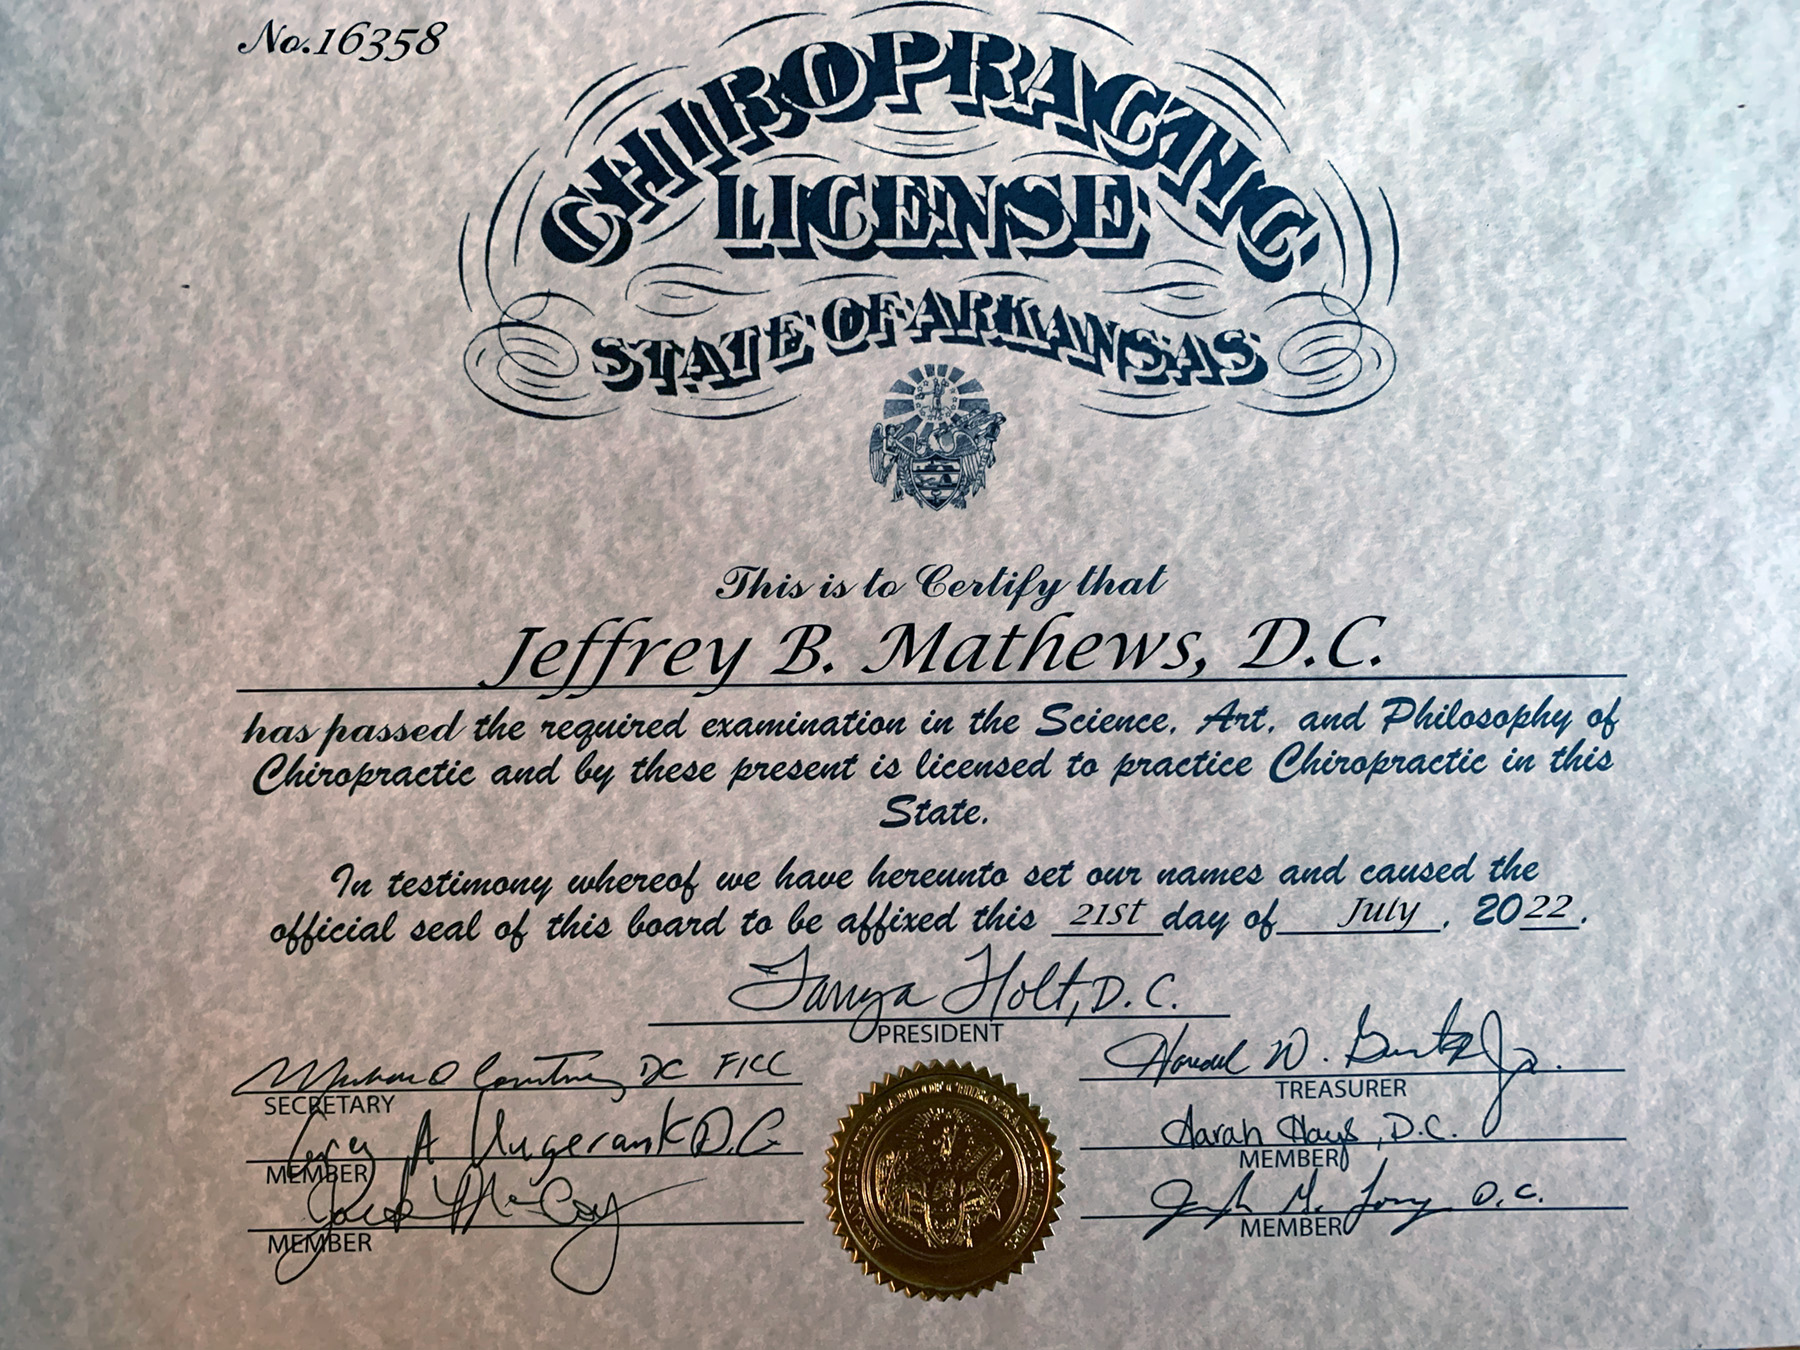 No.16358
CHIROPRACTIC
LICENSE
STATE OF ARKANSAS
This is to Certify that
Jeffrey B. Mathews, D.C.
has passed the required examination in the Science, Art, and Philosophy of
Chiropractic and by these present is licensed to practice Chiropractic in this
State.
In testimony whereof we have hereunto set our names and caused the
official seal of this board to be affixed this 21st day of July, 2022.
Tanya Holt, D.C.
PRESIDENT
DC FICC
SECRETARY
W. Jr.
TREASURER
A D.C.
MEMBER
Sarah Hays, D.C.
MEMBER
Jack McCoy
MEMBER
M. D.C.
MEMBER